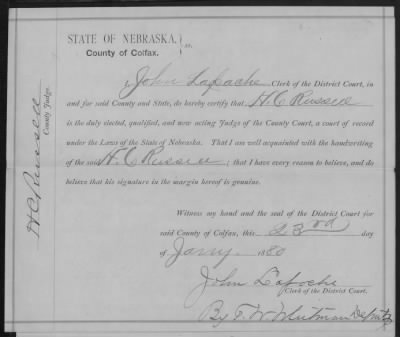 STATE OF NEBRASKA, } ss.
County of Colfax.
I, John Lapache Clerk of the District Court, in
and for said County and State, do hereby certify that H. C. Russell
is the duly elected, qualified, and now acting Judge of the County Court, a court of record
under the Laws of the State of Nebraska. That I am well acquainted with the handwriting
of the said H. C. Russell; that I have every reason to believe, and do
believe that his signature in the margin hereof is genuine.
Witness my hand and the seal of the District Court for
said County of Colfax, this 23rd day
of Jany. 1880
John Lapache
Clerk of the District Court.
By F. W. Whitman Deputy
H C Russell
County Judge.